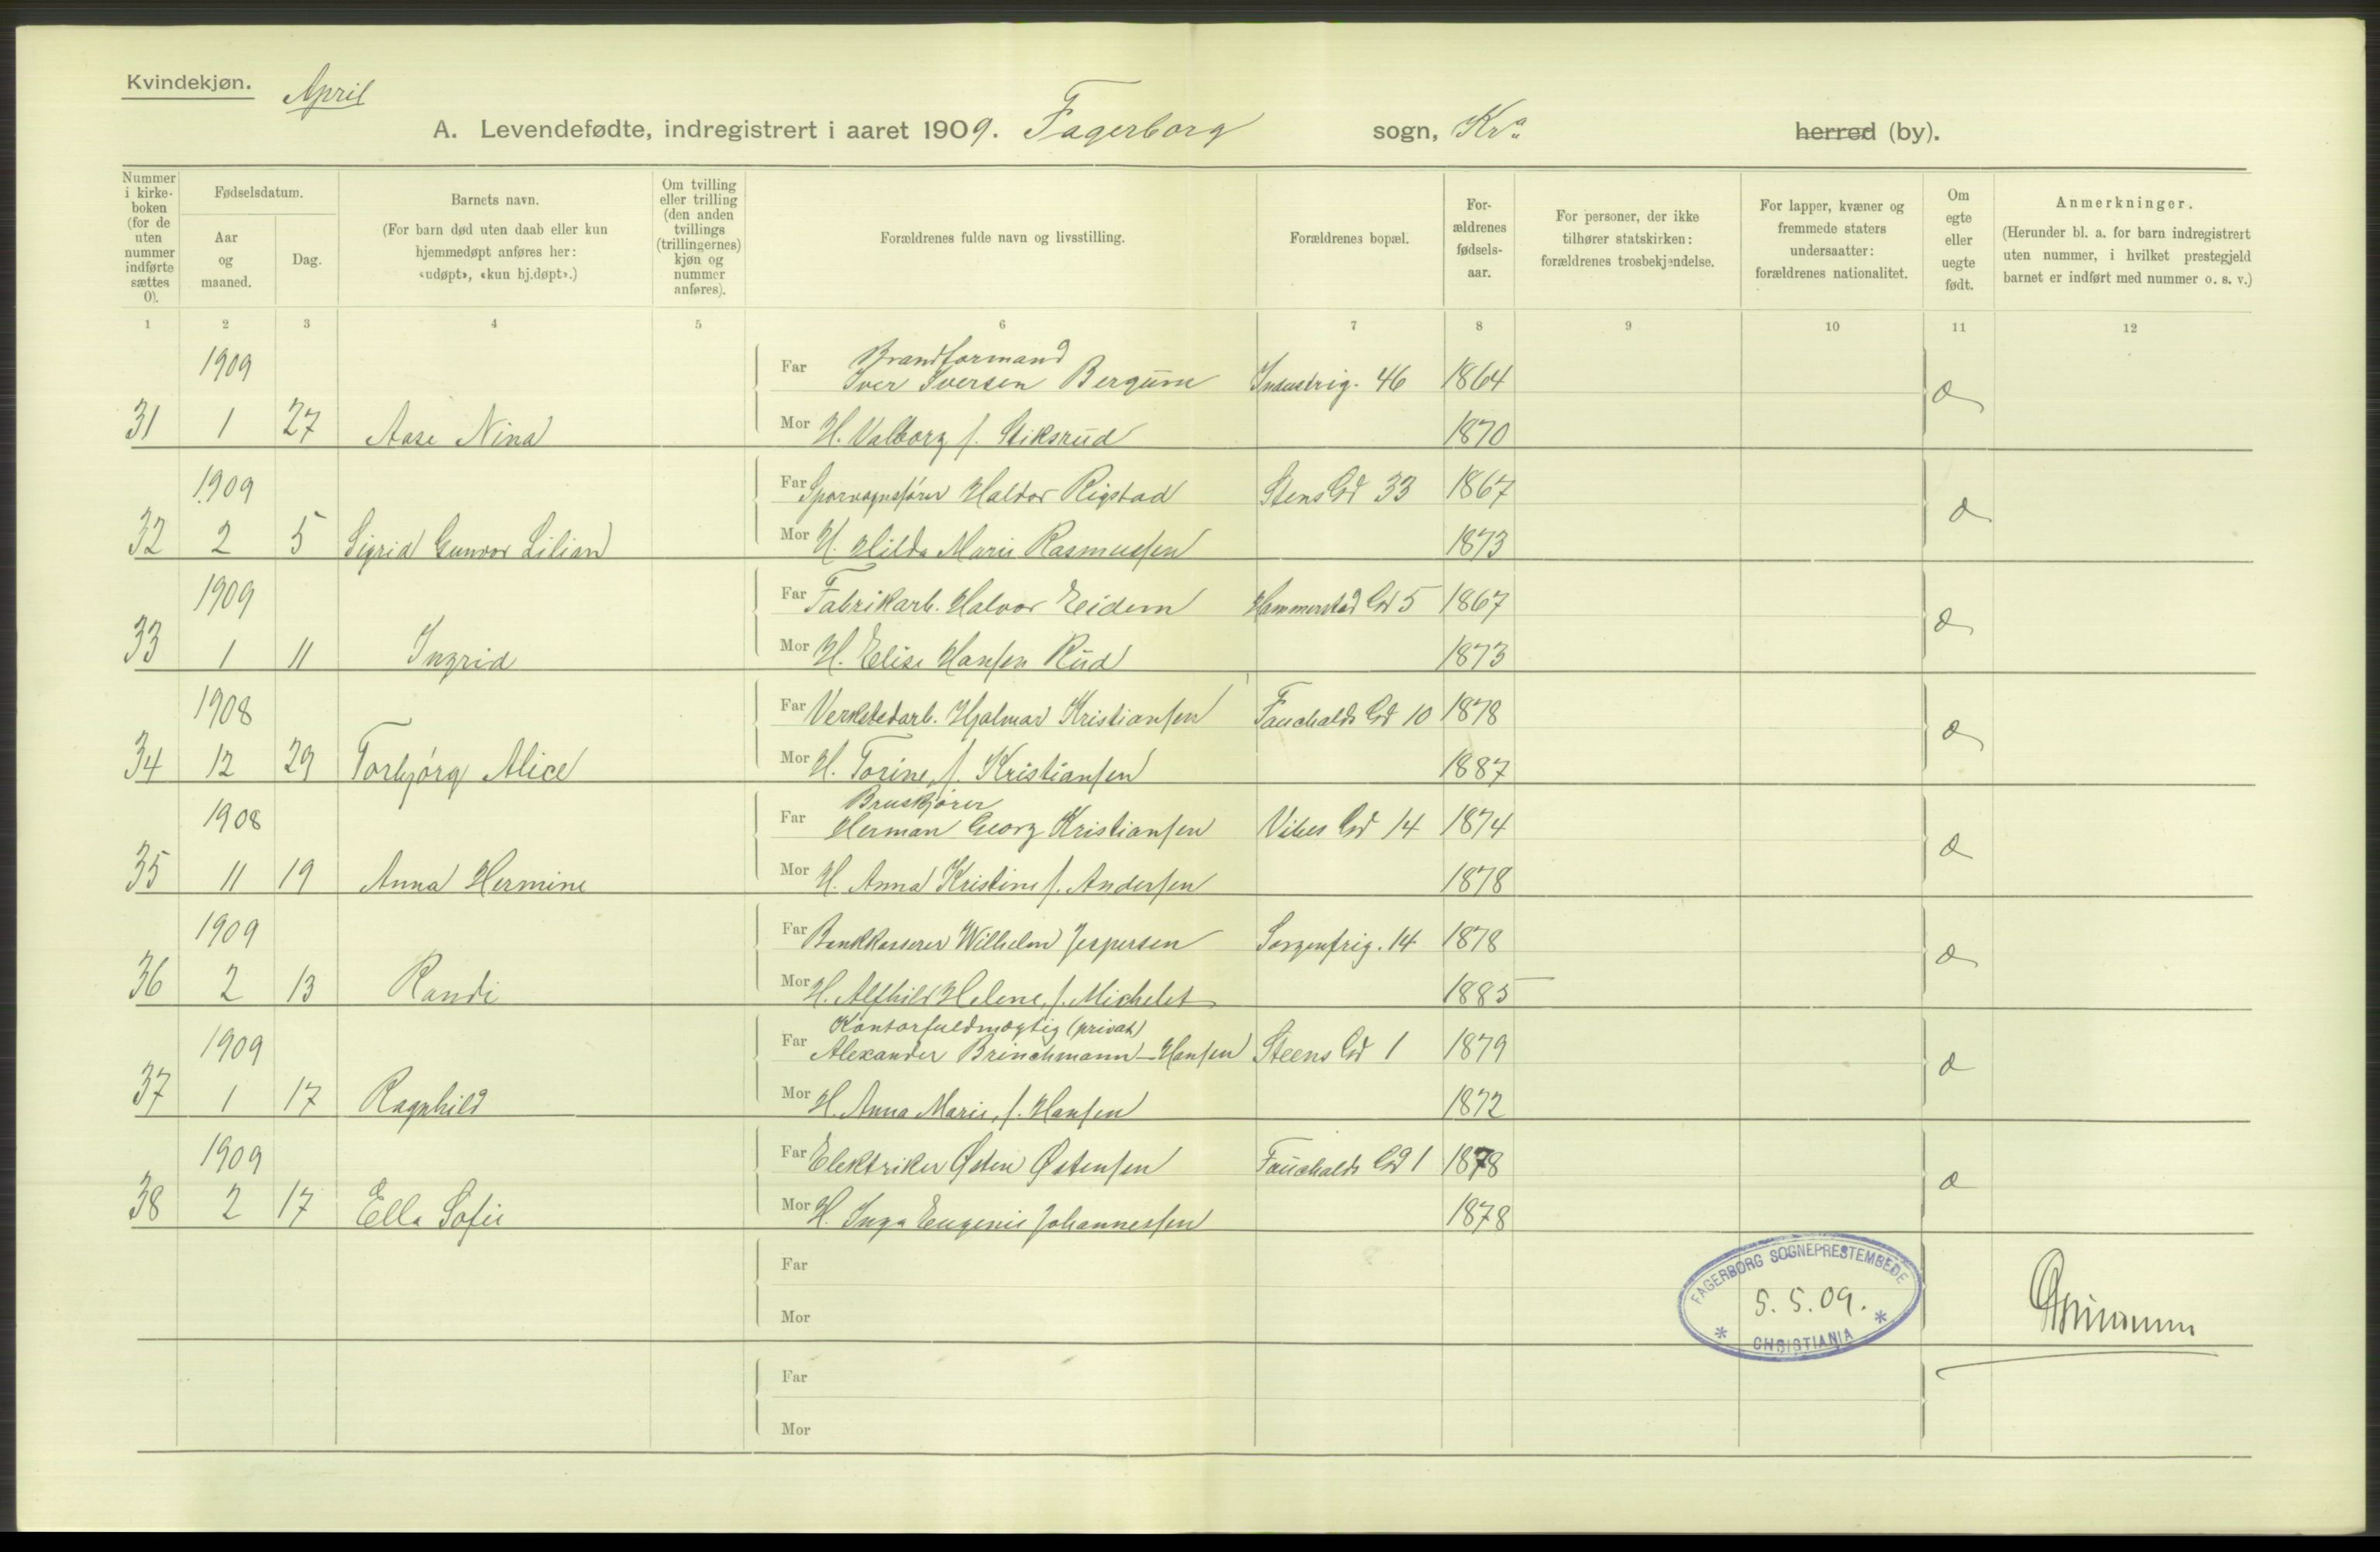 Kvindekjøn. April
A. Levendefødte, indregistrert i aaret 1909. Fagerborg sogn, Kra herred (by).
Nummer i kirkeboken (for de uten nummer indførte sættes 0).
Fødselsdatum.
Aar og maaned.
Dag.
Barnets navn.
(For barn død uten daab eller kun hjemmedøpt anføres her: «udøpt», «kun hj.døpt».)
Om tvilling eller trilling (den anden tvillings (trillingernes) kjøn og nummer anføres).
Forældrenes fulde navn og livsstilling.
Forældrenes bopæl.
Forældrenes fødselsaar.
For personer, der ikke tilhører statskirken: forældrenes trosbekjendelse.
For lapper, kvæner og fremmede staters undersaatter: forældrenes nationalitet.
Om egte eller uegte født.
Anmerkninger.
(Herunder bl. a. for barn indregistrert uten nummer, i hvilket prestegjeld barnet er indført med nummer o. s. v.)
1 2 3 4 5 6 7 8 9 10 11 12
Brandformand
1909 Far Iver Iversen Bergum Industrig. 46 1864 æ
31 1 27 Aase Nina Mor H. Valborg f. Stiksrud 1870
1909 Far Sporvognsfører Haldor Rigstad Stens Gd 33 1867 æ
32 2 5 Sigrid Gunvor Lilian Mor H. Hilda Marie Rasmussen 1873
1909 Far Fabrikarb. Halvor Eidem Hammerstad Gd 5 1867 æ
33 1 11 Ingrid Mor H. Elise Hansen Rud 1873
1908 Far Verkstedarb. Hjalmar Kristiansen Fauchalds Gd 10 1878 æ
34 12 29 Torbjørg Alice Mor H. Torine, f. Kristiansen 1887
Bruskjører
1908 Far Herman Georg Kristiansen Vibes Gd 14 1874 æ
35 11 19 Anna Hermine Mor H. Anna Kristine f. Andersen 1878
1909 Far Bankkasserer Wilhelm Jespersen Sorgenfrig. 14 1878 æ
36 2 13 Randi Mor H. Alfhild Helene, f. Michelet 1885
Kontorfuldmægtig (privat)
1909 Far Alexander Brinchmann-Hansen Steens Gd 1 1879 æ
37 1 17 Ragnhild Mor H. Anna Marie, f. Hansen 1872
1909 Far Elektriker Østen Østensen Fauchalds Gd 1 1878 æ
38 2 17 Ella Sofie Mor H. Inga Eugenie Johannessen 1878
Far
Mor
FAGERBORG SOGNEPRESTEMBEDE
5. 5. 09.
* CHRISTIANIA *
Far
Mor